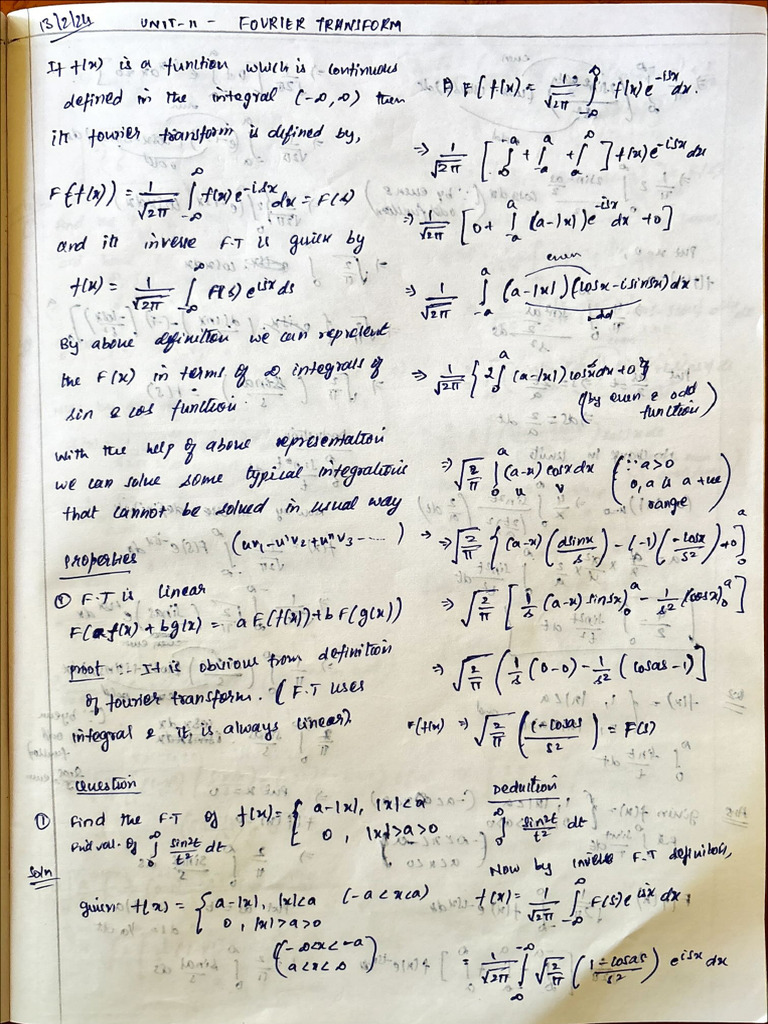 13/2/24 UNIT-II - FOURIER TRANSFORM
If f(x) is a function which is continuous
defined in the integral (-∞,∞) then
its fourier transform is defined by,
F(f(x)) = 1/√2π ∫_{-∞}^{∞} f(x) e^{-isx} dx = F(s)
and its inverse F.T is given by
f(x) = 1/√2π ∫_{-∞}^{∞} F(s) e^{isx} ds
By above definition we can represent
the F(x) in terms of ∞ integrals of
sin & cos function.
With the help of above representation
we can solve some typical integrations
that cannot be solved in usual way
Properties (uv₁ - u'v₂ + u''v₃ - ----)
① F.T is linear
F(af(x) + bg(x)) = a F(f(x)) + b F(g(x))
proof : It is obvious from definition
of fourier transform. (F.T uses
integral & it is always linear).
Question
① Find the F.T of f(x) = { a-|x|, |x|<a
0, |x|>a>0
Find val. of ∫_0^∞ sin²t/t² dt
Soln
given f(x) = { a-|x|, |x|<a (-a<x<a)
0, |x|>a>0
(-∞<x<-a
a<x<∞)
F(f(x) = 1/√2π ∫_{-∞}^{∞} f(x) e^{-isx} dx.
⇒ 1/√2π [ ∫_{-∞}^{-a} + ∫_{-a}^{a} + ∫_{a}^{∞} ] f(x) e^{-isx} dx
⇒ 1/√2π [ 0 + ∫_{-a}^{a} (a-|x|) e^{-isx} dx + 0 ]
even
⇒ 1/√2π ∫_{-a}^{a} (a-|x|) (cosx - i sinsx) dx
odd
⇒ 1/√2π { 2 ∫_0^a (a-|x|) cos sx dx + 0 }
(by even & odd
function)
⇒ √2/π ∫_0^a (a-x) cosx dx (∵ a>0
u v 0, a is a +ve
range)
⇒ √2/π { (a-x) (sinsx/s) - (-1) (-cosx/s²) + 0 ]_0^a
⇒ √2/π [ 1/s (a-x) sinsx)_0^a - 1/s² (cosx)_0^a ]
⇒ √2/π ( 1/s (0-0) - 1/s² (cosas - 1) ]
F(f(x) ⇒ √2/π ( 1-cosas/s² ) = F(s)
Deduction
∫_0^∞ sin²t/t² dt
Now by inverse F.T definition,
f(x) = 1/√2π ∫_{-∞}^{∞} F(s) e^{isx} dx
= 1/√2π ∫_{∞}^{-∞} √2/π ( 1-cosas/s² ) e^{isx} dx